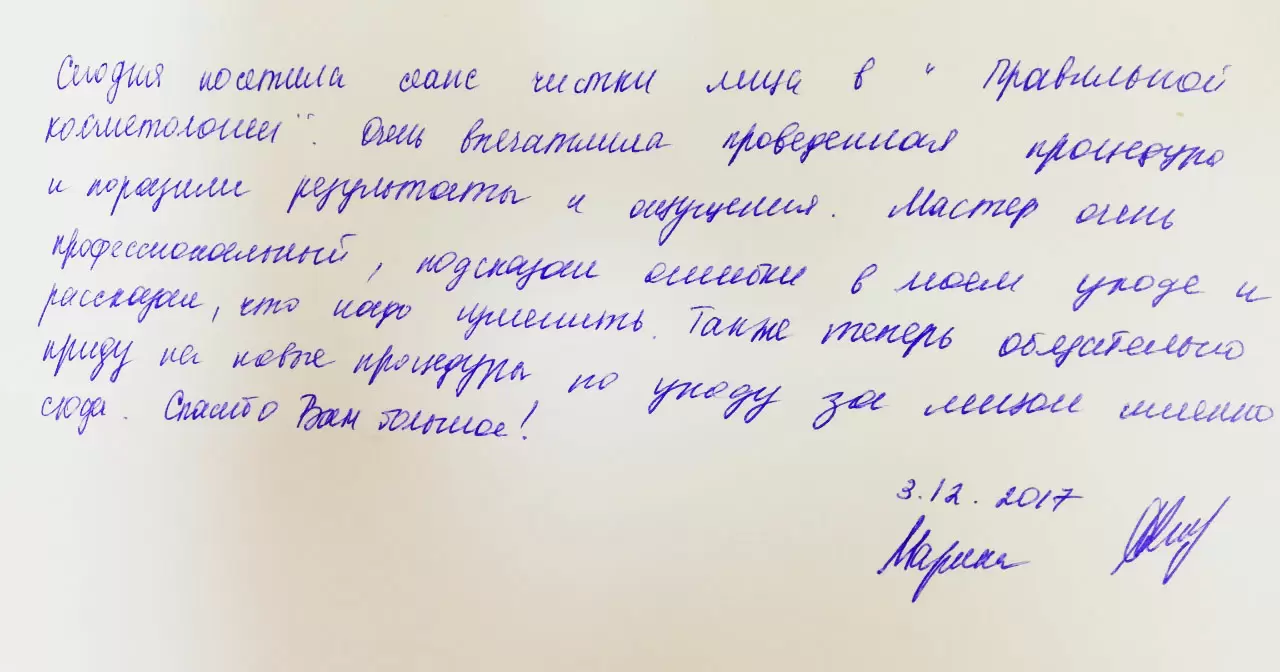 Сегодня посетила сеанс чистки лица в "Правильной
косметологии". Очень впечатлила проведенная процедура
и поразили результаты и ощущения. Мастер очень
профессиональный, подсказал ошибки в моем уходе и
рассказал, что надо изменить. Также теперь обязательно
приду на новые процедуры по уходу за лицом именно
сюда. Спасибо Вам большое!
3.12.2017
Марина